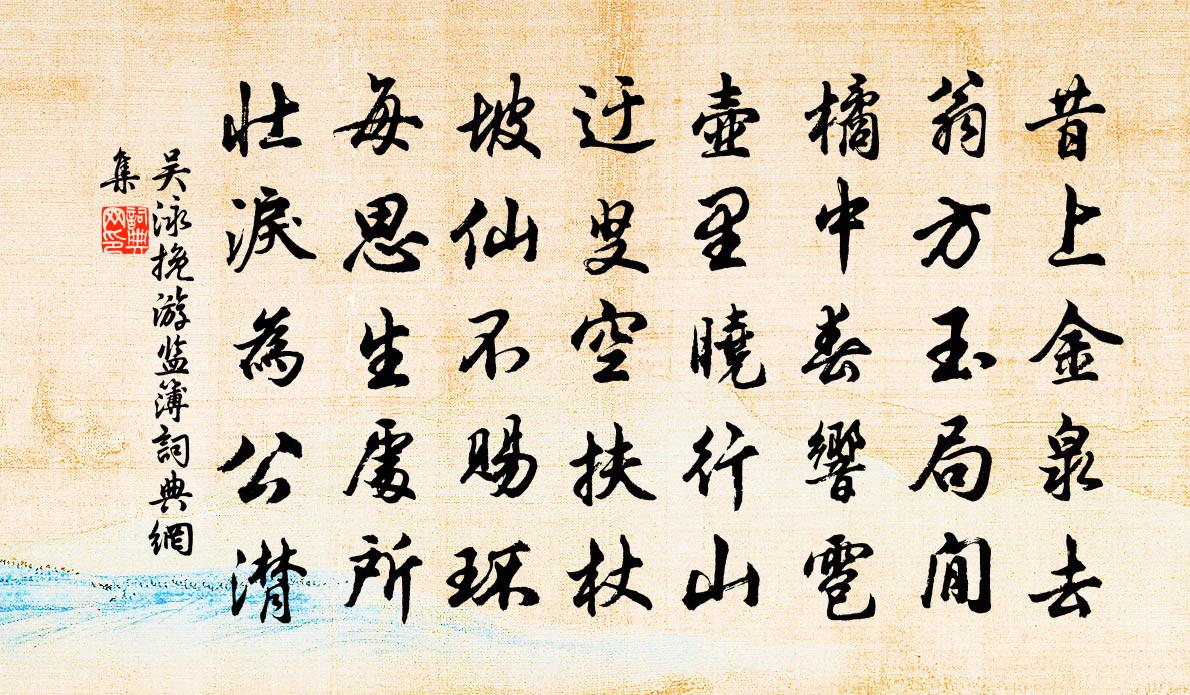 昔上金泉去
翁方玉局閒
橘中春響雹
壺里曉行山
迂叟空扶杖
坡仙不賜環
每思生處所
壯淚為公潸
吴泳挽游监簿詞典網
集
詞典
网印